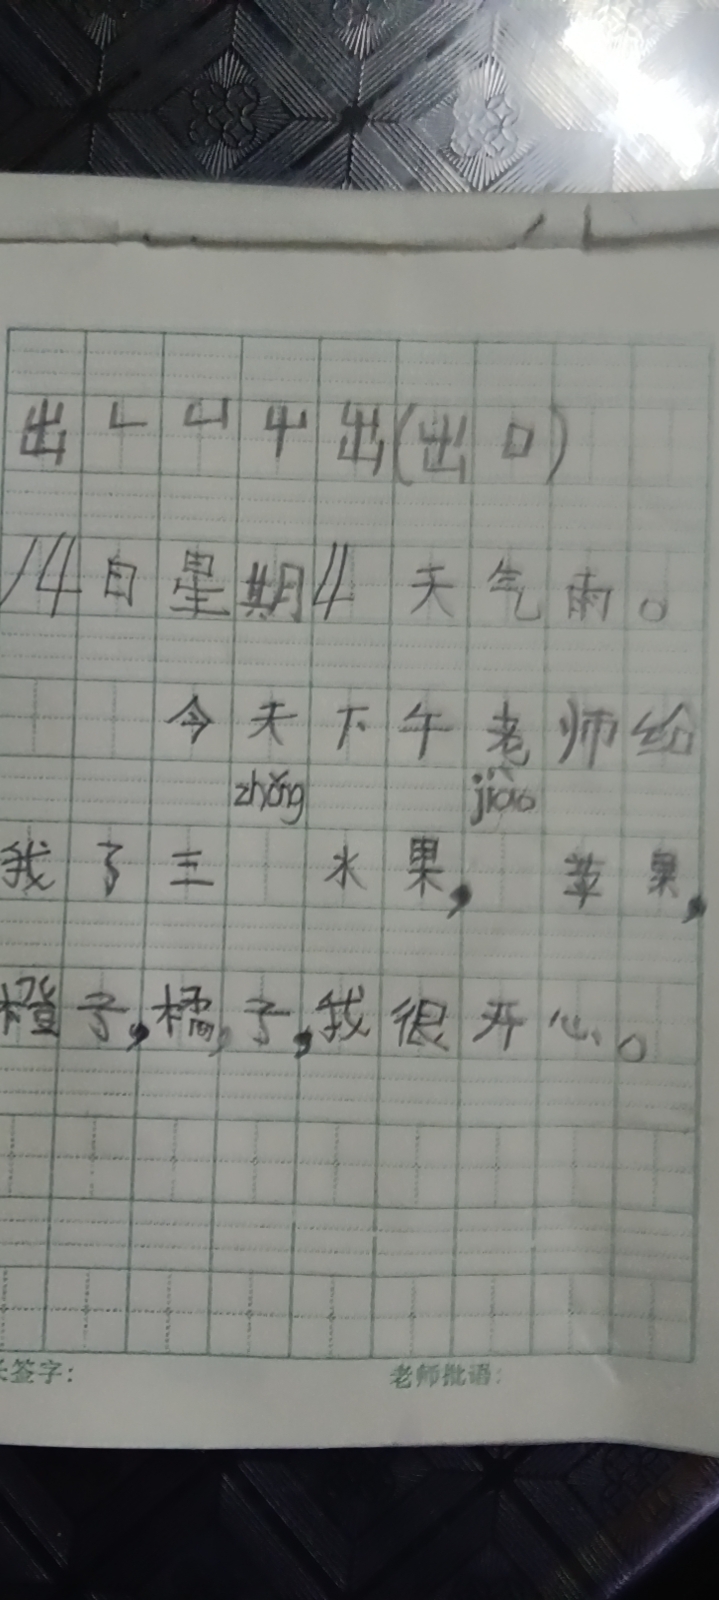 出𠃊凵屮出(出口)
14日星期4 天气雨。
今天下午老师给
zhǒng jiào
我了三 水果, 苹果,
橙子,橘,子,我很开心。
签字: 老师批语: